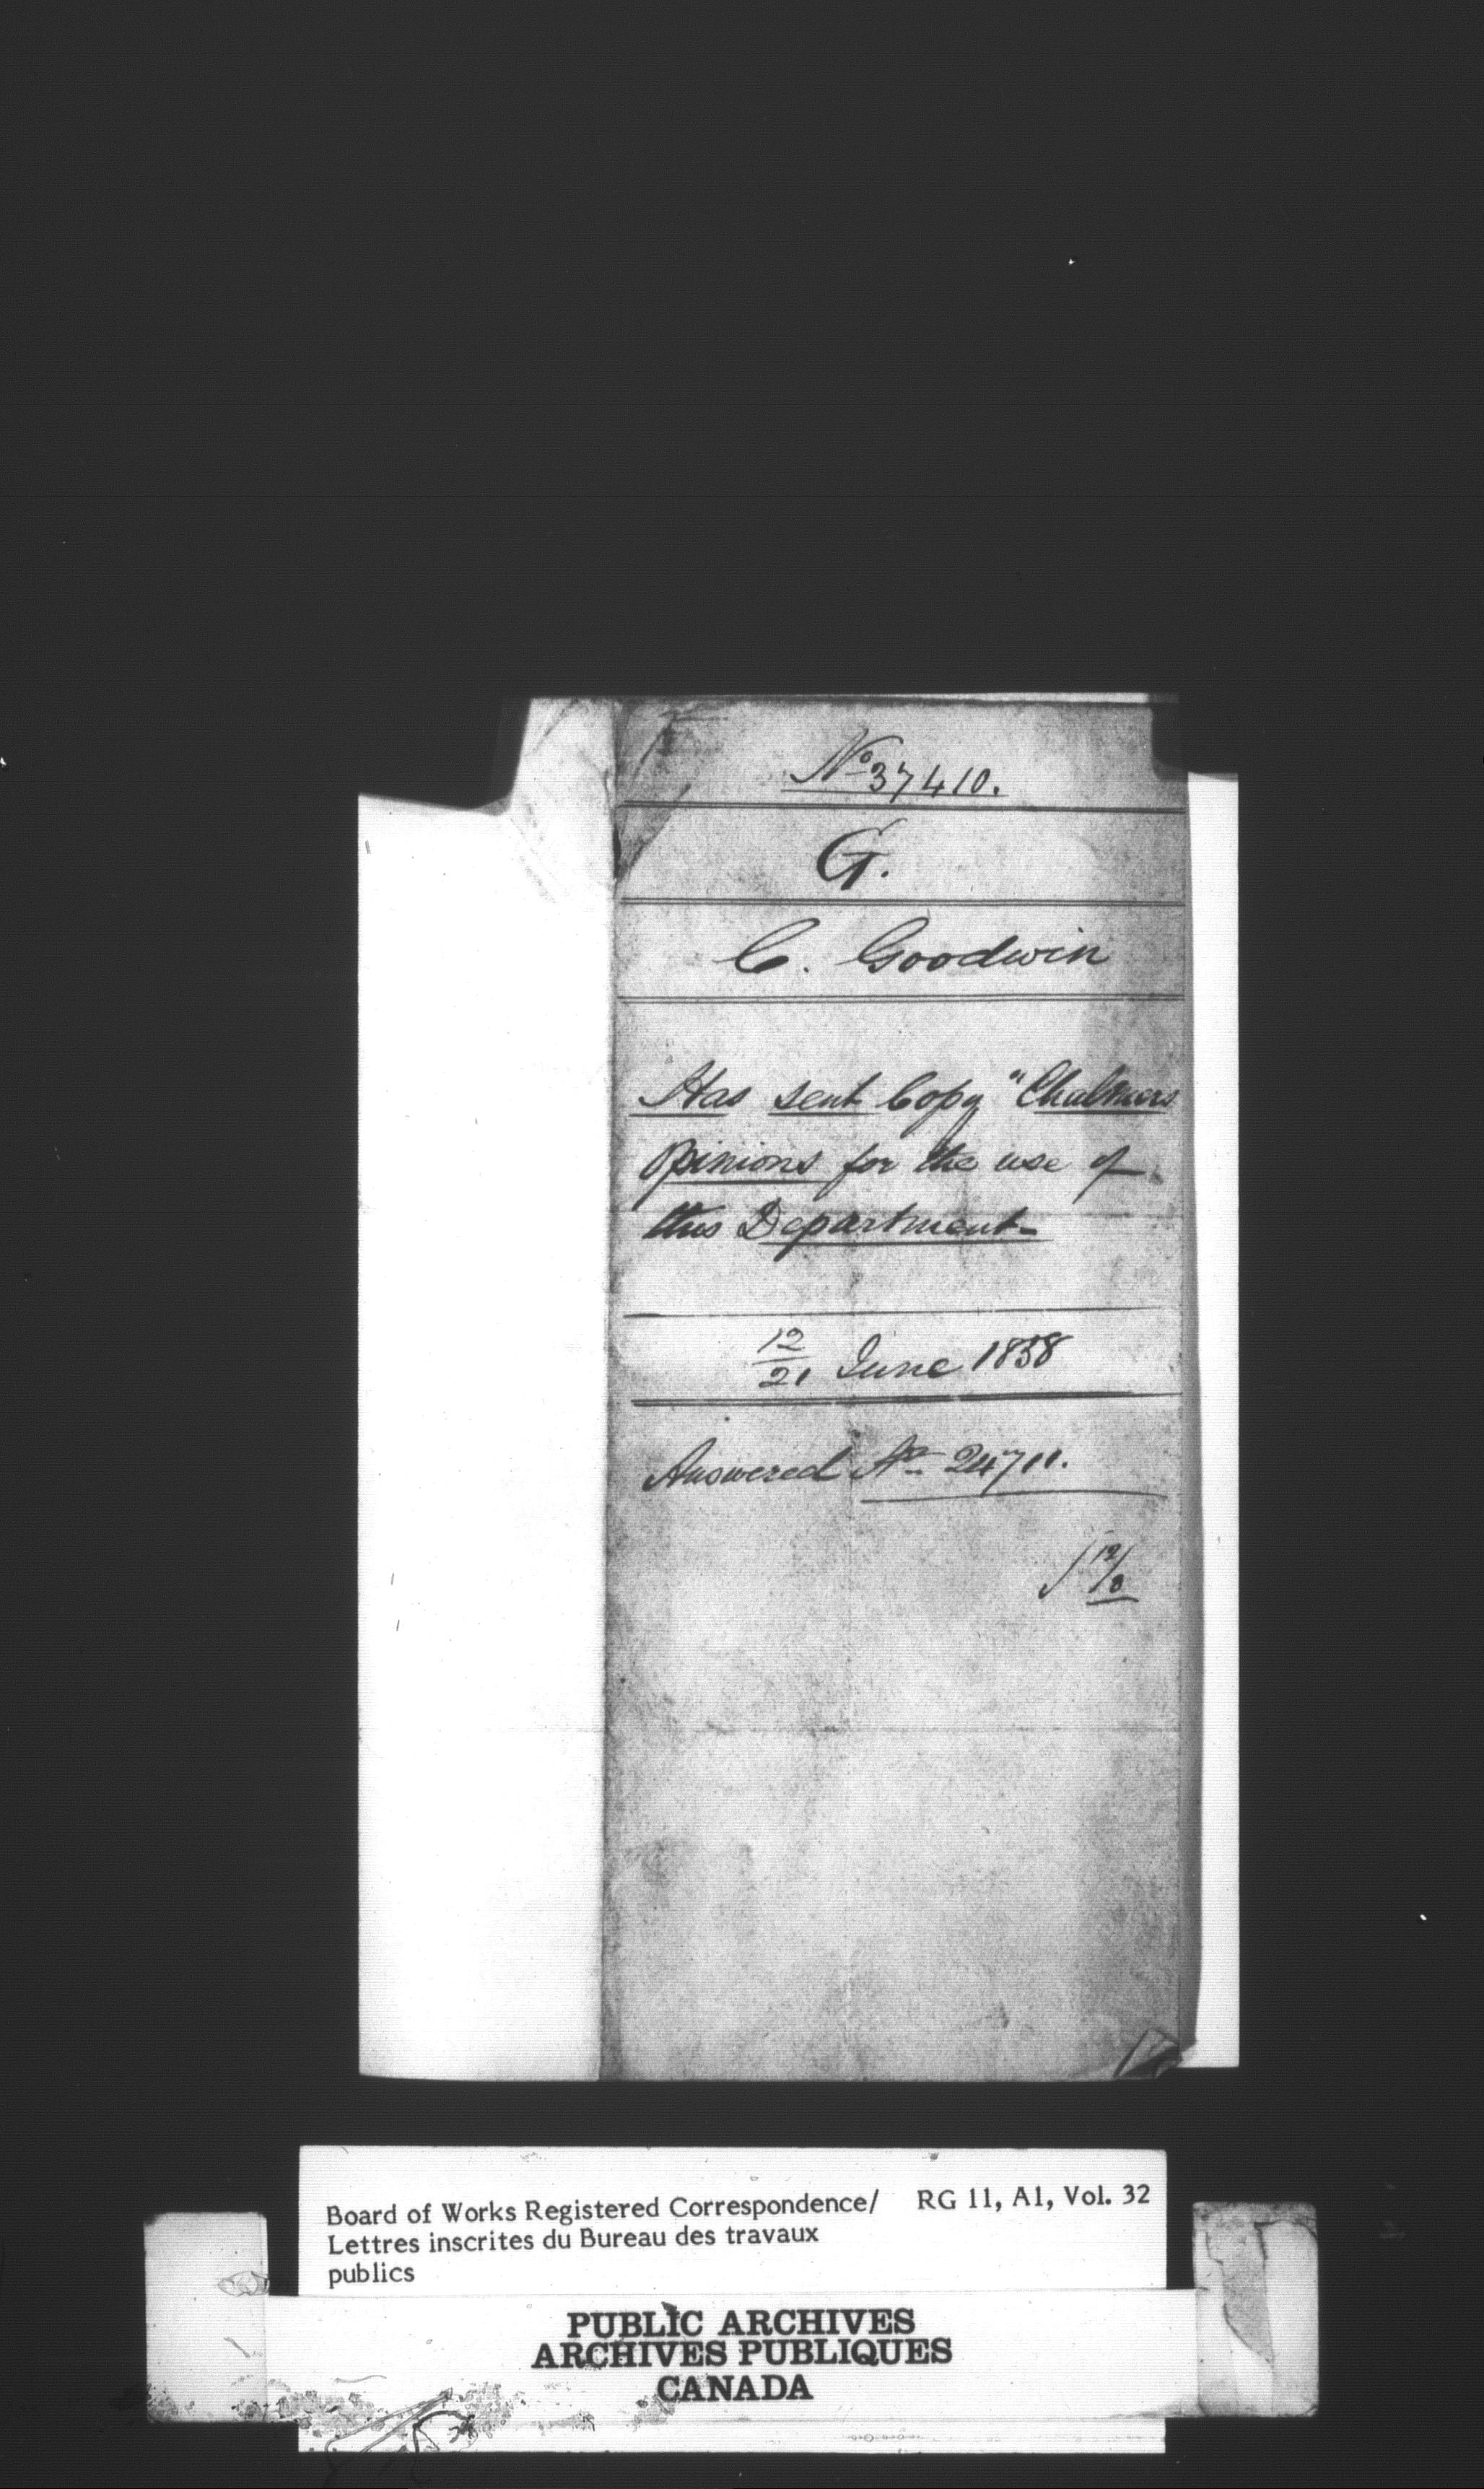 No 37410.
G.
C. Goodwin
Has sent Copy "Chalmers
Opinions for the use of
this Department-
12/21 June 1858
Answered No 24711.
12/8
Board of Works Registered Correspondence/ RG 11, A1, Vol. 32
Lettres inscrites du Bureau des travaux
publics
PUBLIC ARCHIVES
ARCHIVES PUBLIQUES
CANADA